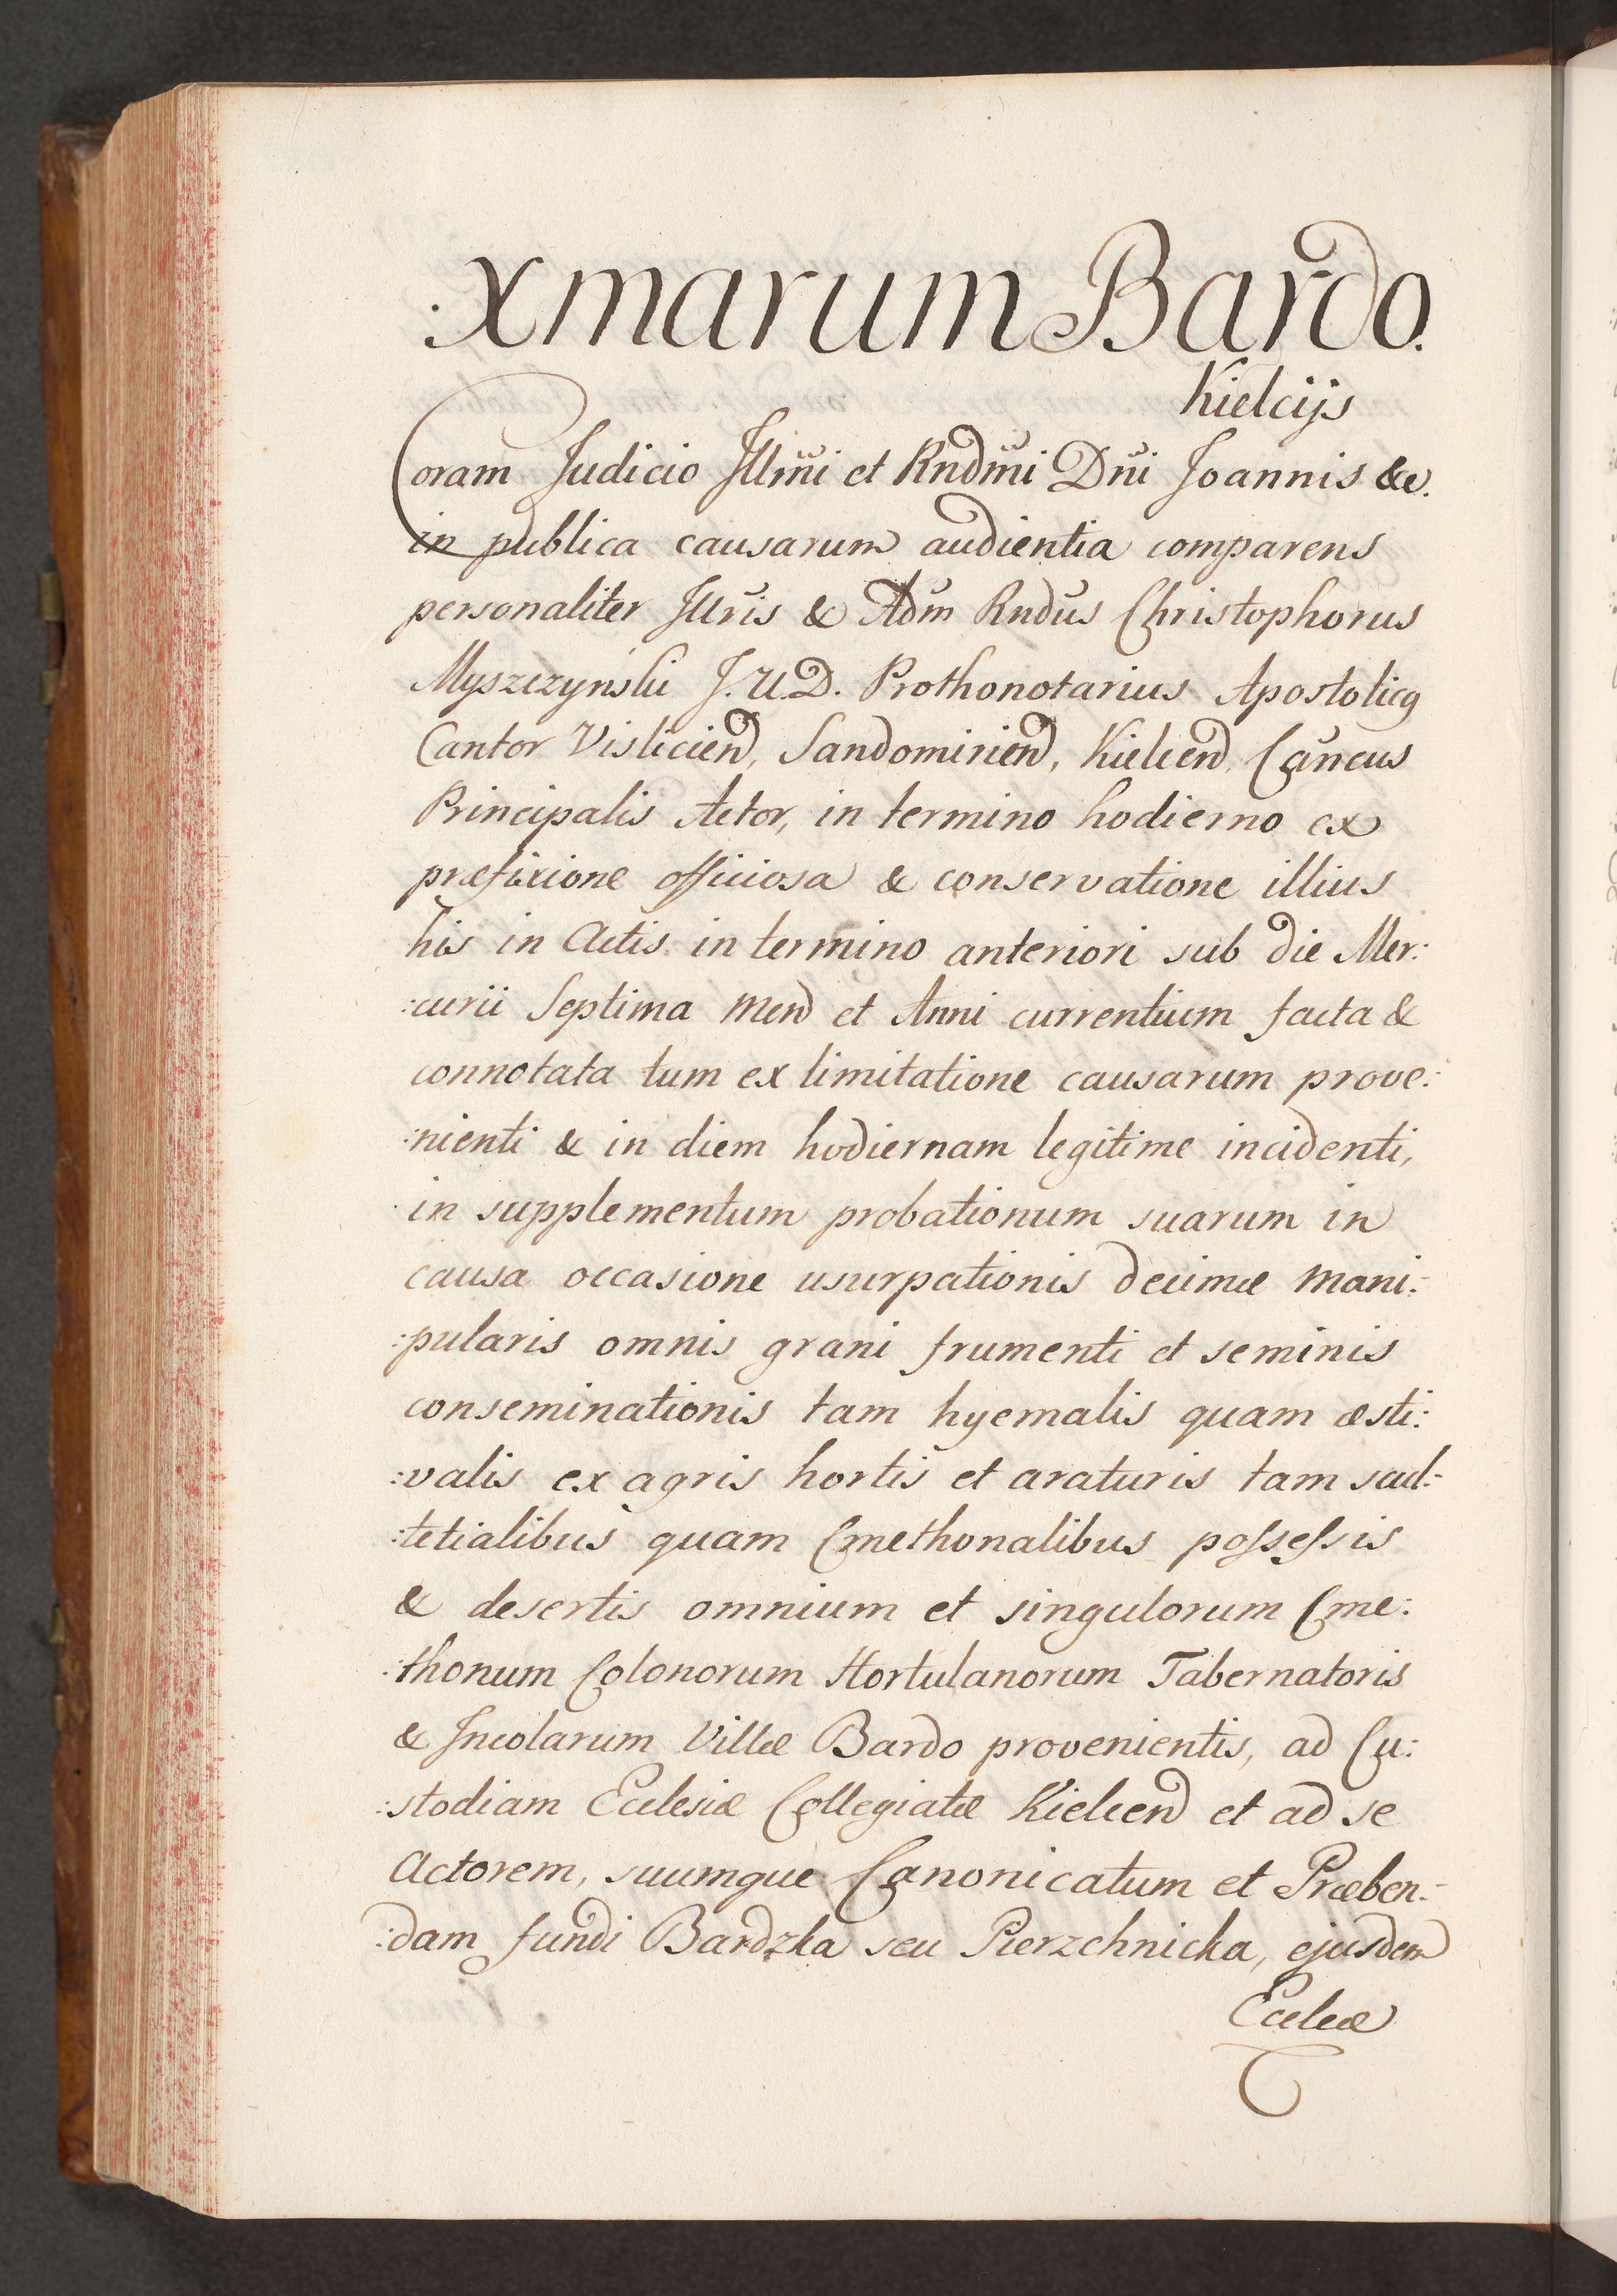 :xmarum Bardo.
Kielcijs
Coram Judicio Illmi et Rndmi Dni Joannis &c.
in publica causarum audientia comparens
personaliter Illris & Adm Rndus Christophorus
Myszczynski J.U.D. Prothonotarius Apostolicq
Cantor Vislicien, Sandomirien, Kielcen, Cancus
Principalis Actor, in termino hodierno ex
præfixione officiosa & conservatione illius
his in Actis in termino anteriori sub die Mer:
:curii Septima Men et Anni currentium facta &
connotata tum ex limitatione causarum prove:
:nienti & in diem hodiernam legitime incidenti,
in supplementum probationum suarum in
causa occasione usurpationis decimæ mani:
:pularis omnis grani frumenti et seminis
conseminationis tam hyemalis quam æsti:
:valis ex agris hortis et araturis tam scul:
:tetialibus quam Cmethonalibus possessis
& desertis omnium et singulorum Cme:
:thonum Colonorum Hortulanorum Tabernatoris
& Incolarum Villæ Bardo provenientis, ad Cu:
:stodiam Ecclesiæ Collegiatæ Kielcen et ad se
Actorem, suumque Canonicatum et Præben:
:dam fundi Bardzka seu Pierzchnicka, ejusdem
Eccleæ